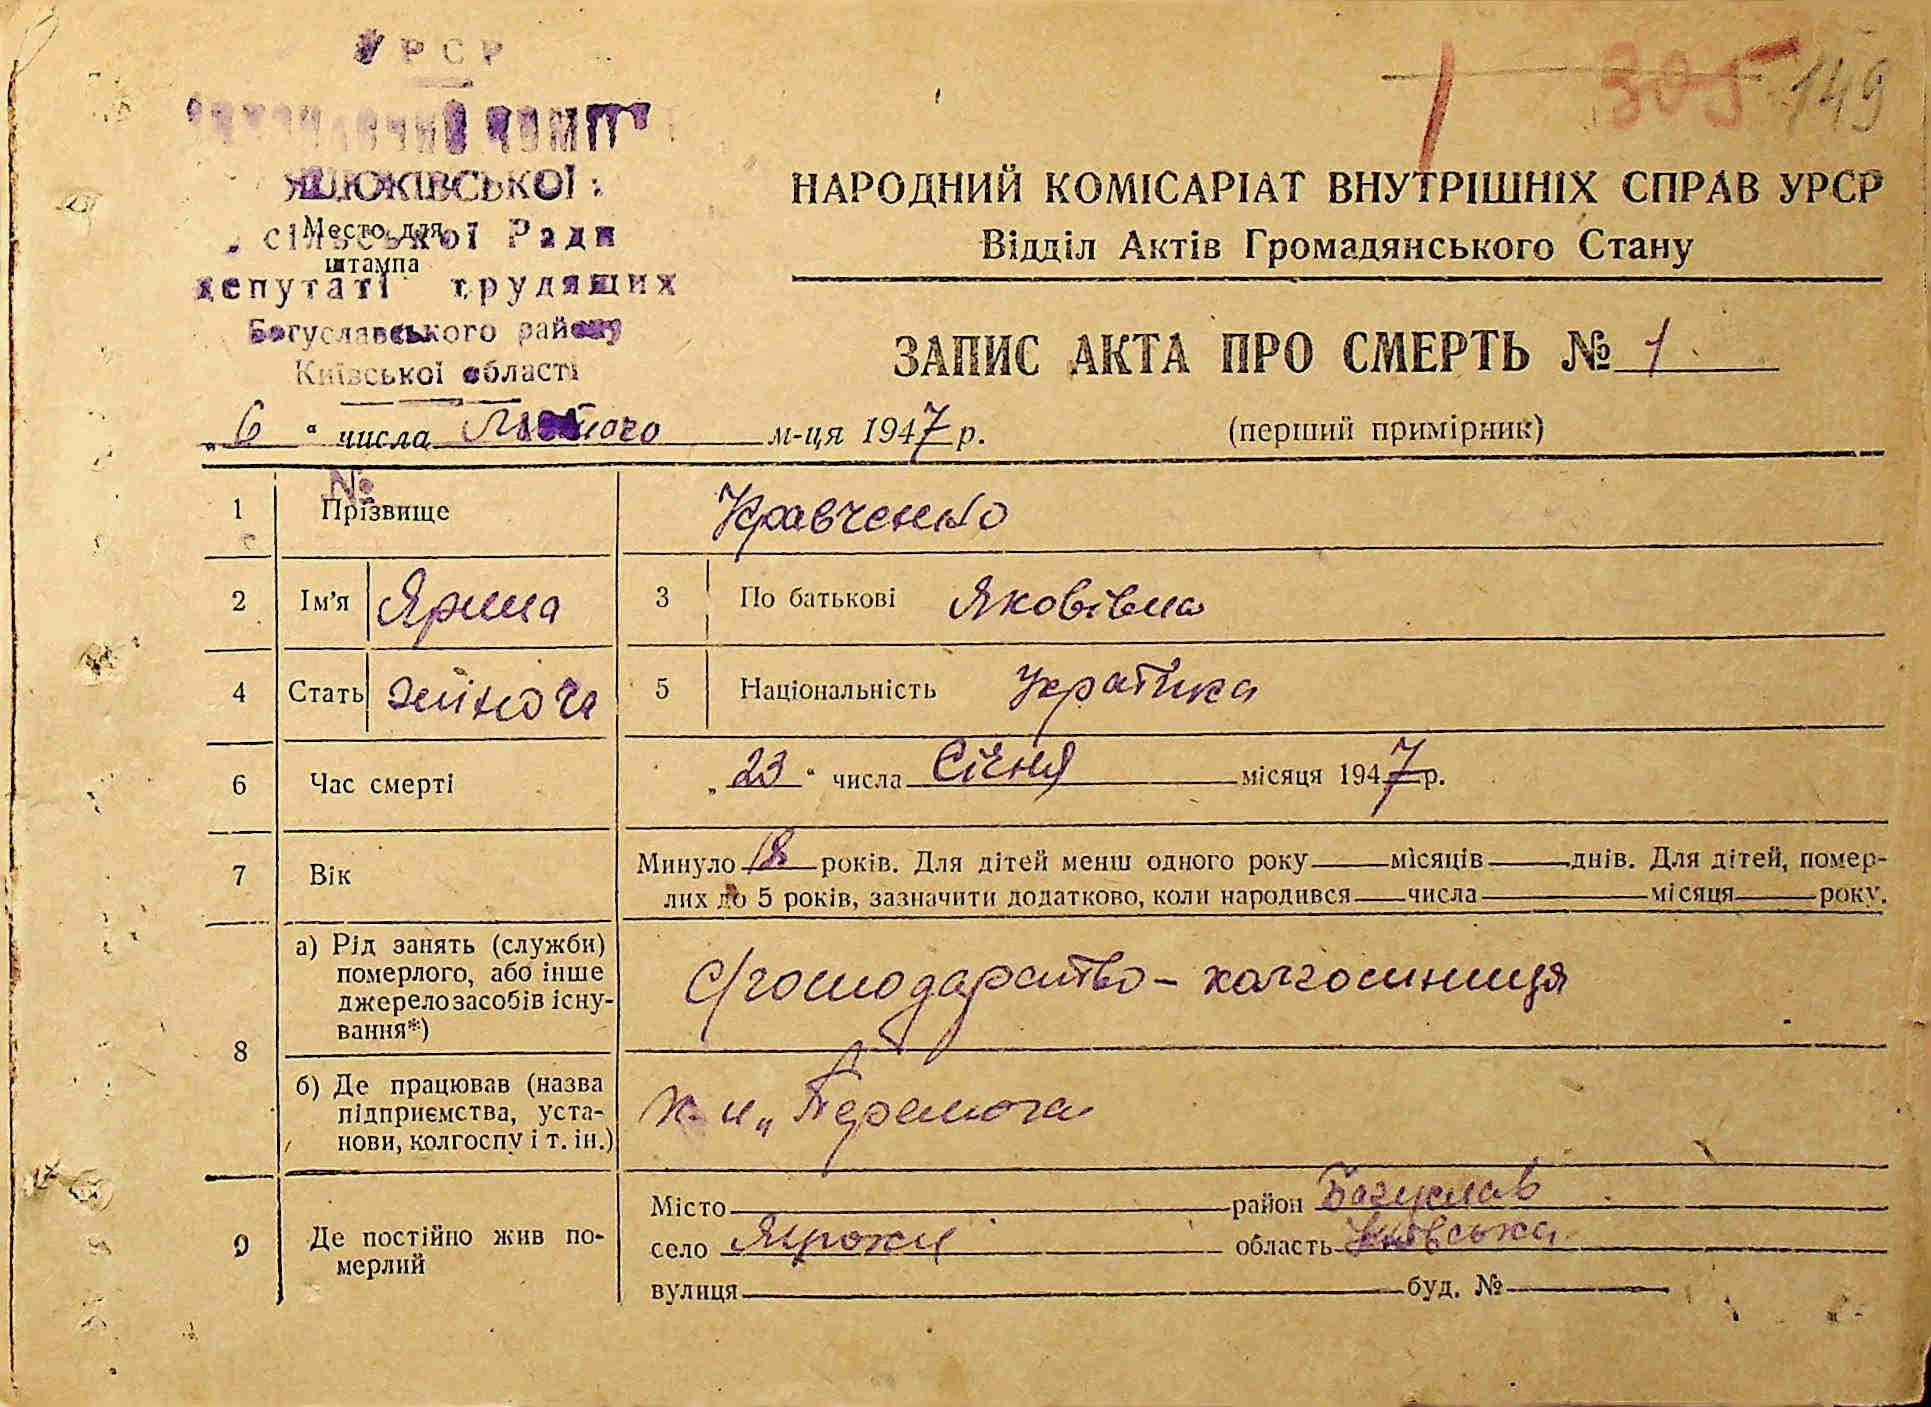 УРСР
305 149
НАРОДНИЙ КОМІСАРІАТ ВНУТРІШНІХ СПРАВ УРСР
Відділ Актів Громадянського Стану
Место для
штампа
сільської Ради
депутаті трудящих
Богуславського району
Київської області
ЗАПИС АКТА ПРО СМЕРТЬ № 1
„6“ числа Лютого м-ця 1947 р.
(перший примірник)
№
1 Прізвище Кравченко
2 Ім'я Ярина 3 По батькові Яковівна
4 Стать жіноча 5 Національність Українка
6 Час смерті „23“ числа Січня місяця 1947 р.
7 Вік Минуло 18 років. Для дітей менш одного року місяців днів. Для дітей, помер-
лих до 5 років, зазначити додатково, коли народився числа місяця року.
8 а) Рід занять (служби)
померлого, або інше
джерело засобів існу-
вання*)
с/господарство - колгоспниця
б) Де працював (назва
підприємства, уста-
нови, колгоспу і т. ін.)
„Перемога
9 Де постійно жив по-
мерлий
Місто район Богуслав
село область Київська
вулиця буд. №